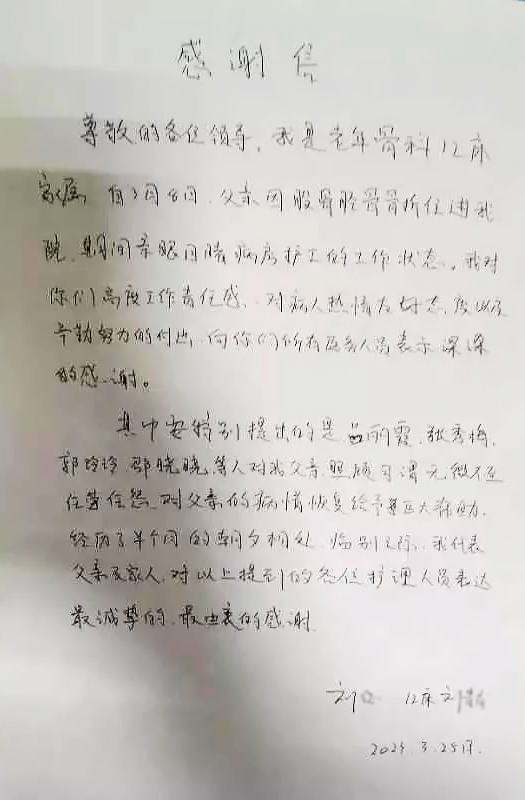 感谢信
尊敬的各位领导，我是老年骨科12床
家属 自3月8日，父亲因股骨胫骨骨折住进我
院，期间亲眼目睹病房护工的工作状态，我对
你们高度工作责任感、对病人热情友好态度以及
辛勤努力的付出，向你们所有医务人员表示深深
的感谢。
其中要特别提出的是吕丽霞、狄秀梅、
郭玲玲、鄢晓晓，等人对我父亲照顾可谓无微不至
任劳任怨，对父亲的病情恢复给予莫大帮助，
经历了半个月的朝夕相处，临别之际，我代表
父亲及家人，对以上提到的各位护理人员表达
最诚挚的、最由衷的感谢
刘 12床刘
3.25日.